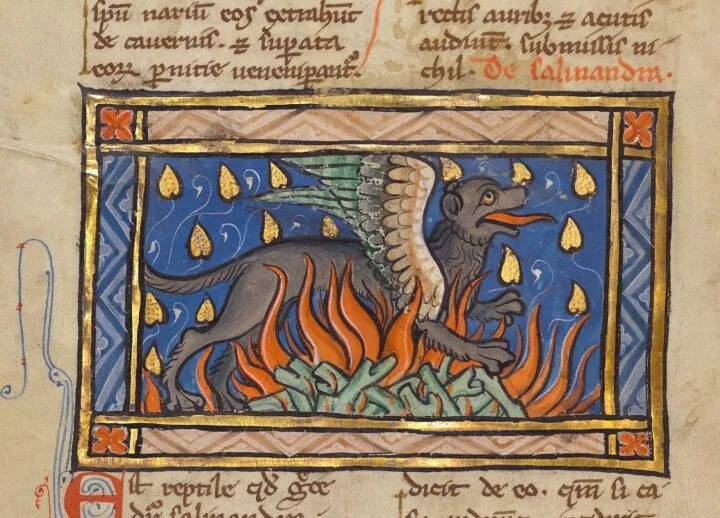 spū nariū eos extrahūt
de cavernis. ⁊ suꝑata
eoꝝ ꝑnitie veneni ꝑāt.
rectis auribꝫ ⁊ acutis
audiūt. submissis ni-
chil. De salmandra.
Est reptile qd gͤce
dr̄ salmandra
dicit de eo. qm̄ si ca